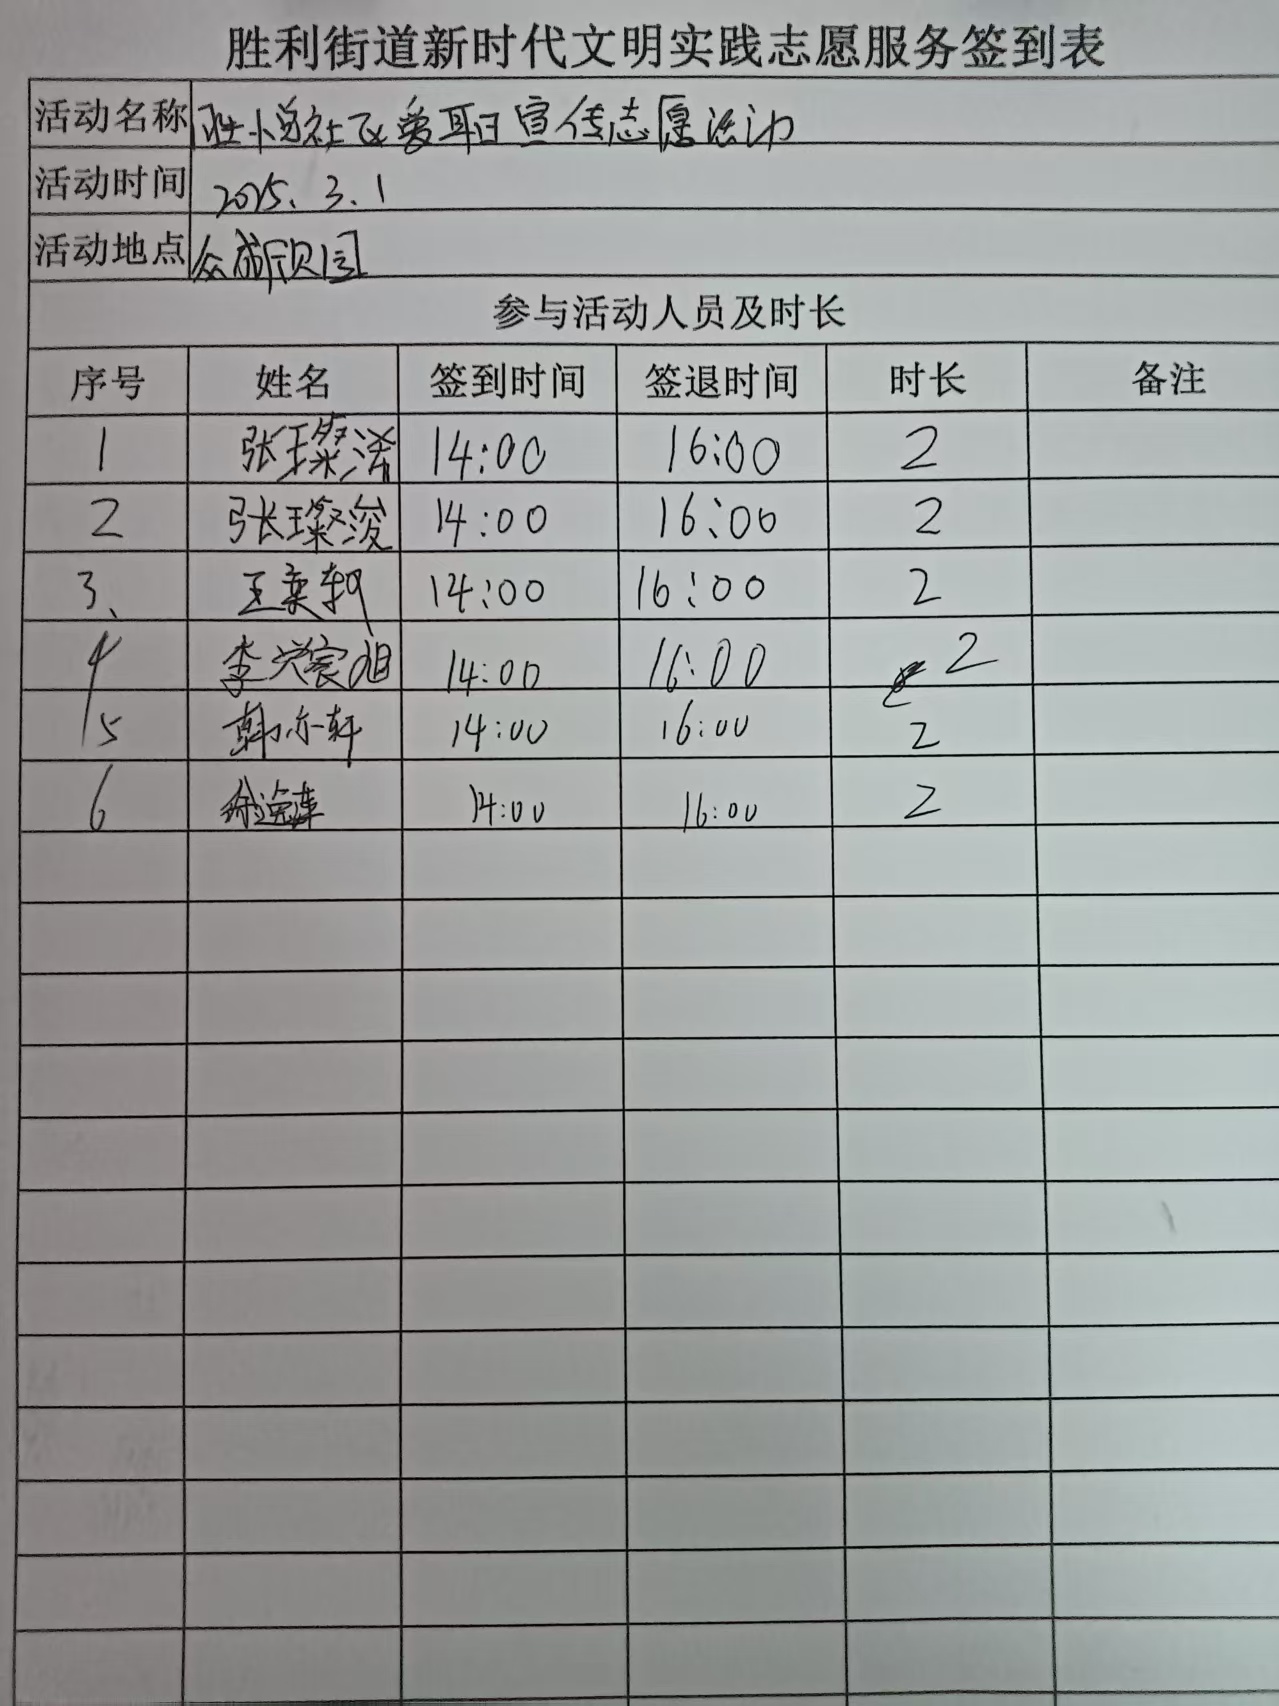 胜利街道新时代文明实践志愿服务签到表
活动名称 胜悦社区爱耳日宣传志愿活动
活动时间 2025.3.1
活动地点 众成欣园
参与活动人员及时长
序号 姓名 签到时间 签退时间 时长 备注
1 张璨浠 14:00 16:00 2
2 张璨浚 14:00 16:00 2
3、 王奕轲 14:00 16:00 2
4 李宸旭 14:00 16:00 2
5 韩亦轩 14:00 16:00 2
6 徐 14:00 16:00 2